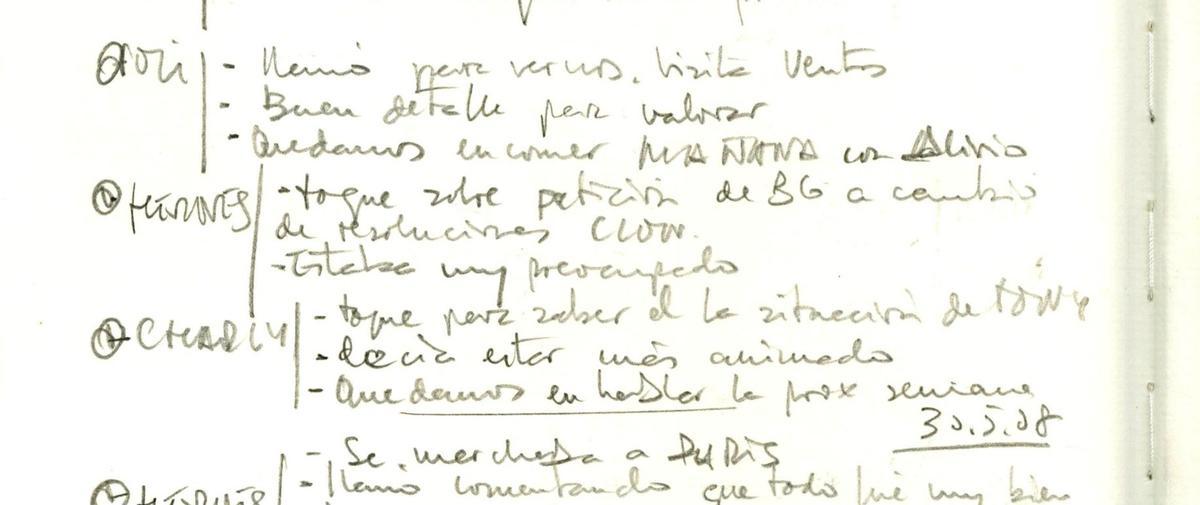 - Llamó para vernos. Visita Ventos
- Buen detalle para valorar
- Quedamos en comer MAÑANA con Alivio
HERMES - toque sobre petición de BG a cambio
de resoluciones CLOW.
- Estaba muy preocupado
CHARLY - toque para saber d la situación de TONY
- decía estar más animado
- Quedamos en hablar la prox semana
30.5.08
- Se marchaba a PARIS
HERMES - llamó comentando que todo fué muy bien